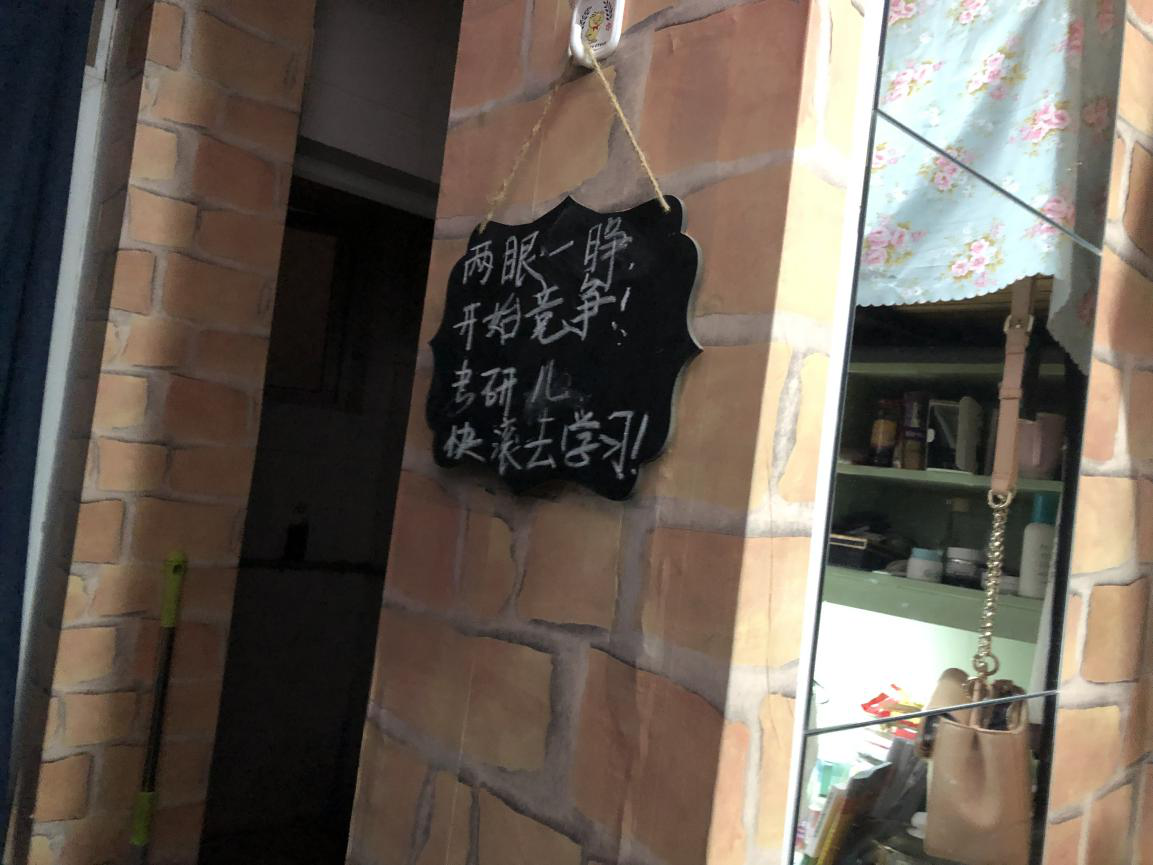 两眼一睁,
开始竞争!
考研儿
快滚去学习!